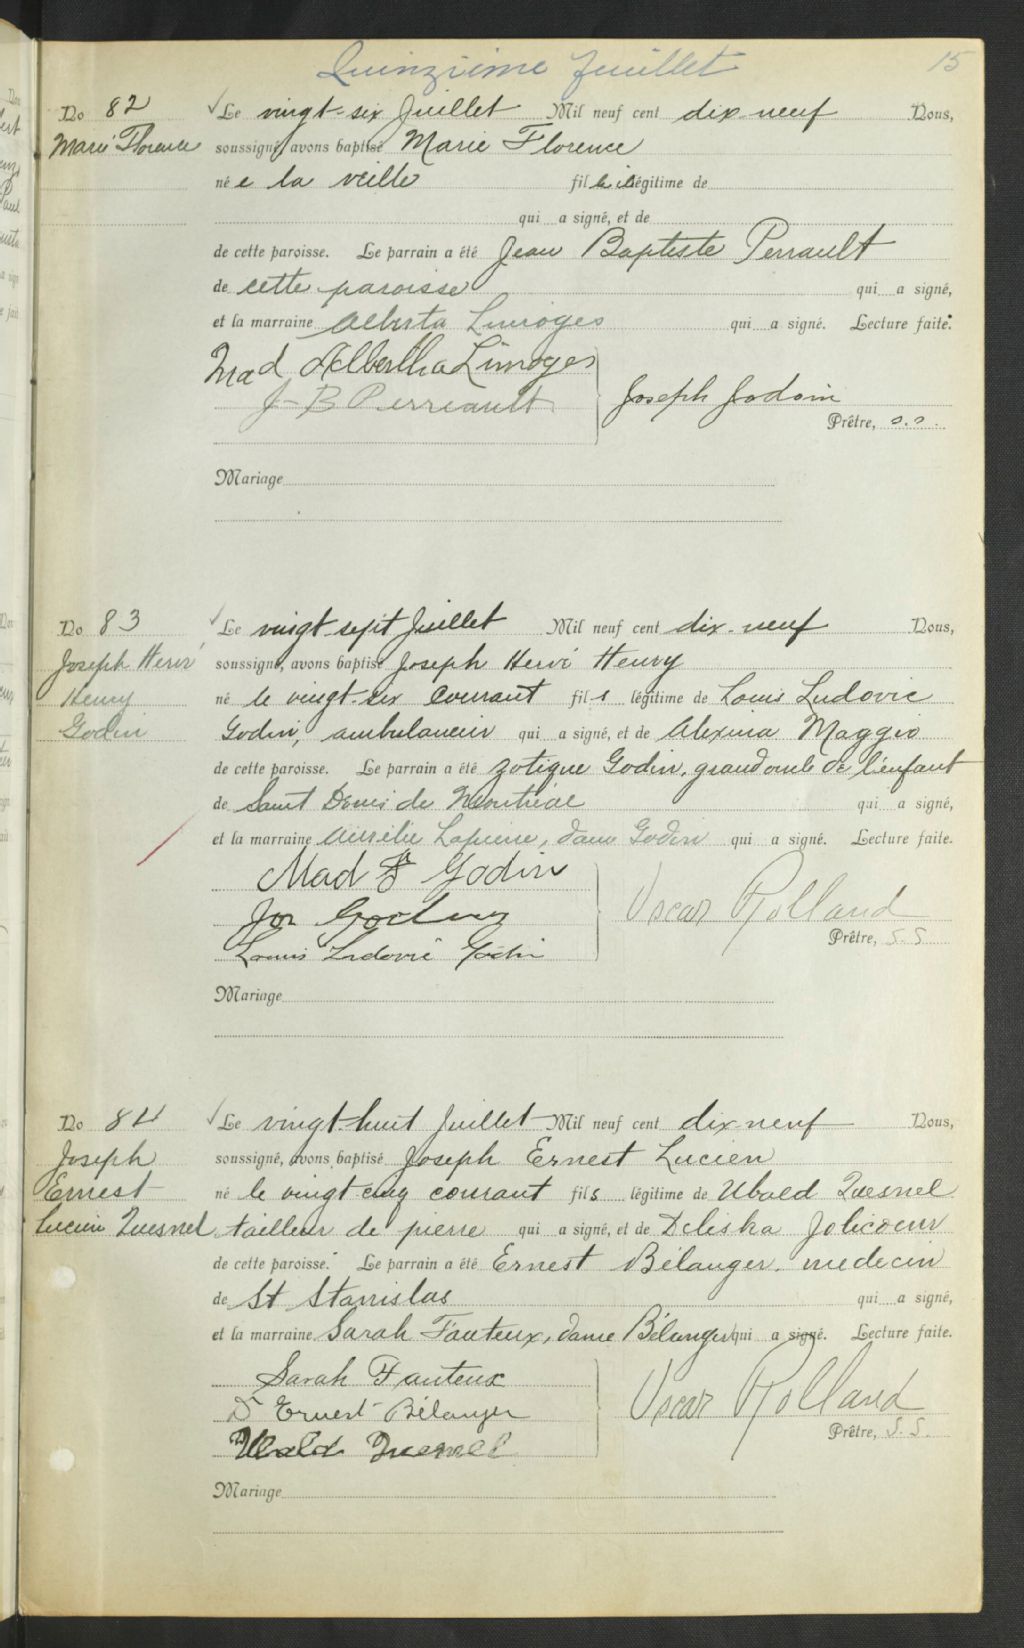 Quinzième feuillet 15
No 82 Le vingt-six Juillet Mil neuf cent dix-neuf Nous,
Marie Florence soussigné, avons baptisé Marie Florence
né e la veille fil légitime de
qui a signé, et de
de cette paroisse. Le parrain a été Jean Baptiste Perrault
de cette paroisse qui a signé,
et la marraine Alberta Limoges qui a signé. Lecture faite.
Mad Albertha Limoges
J-B Perreault Joseph Jodoin
Prêtre, s.s.
Mariage
No 83 Le vingt-sept Juillet Mil neuf cent dix-neuf Nous,
Joseph Hervé soussigné, avons baptisé Joseph Hervé Henry
Henry né le vingt-six courant fil s légitime de Louis Ludovic
Godin Godin, ambulancier qui a signé, et de Alexina Maggio
de cette paroisse. Le parrain a été Zotique Godin, grand oncle de l'enfant
de Saint Denis de Montréal qui a signé,
et la marraine Aurélie Lapierre, dame Godin qui a signé. Lecture faite.
Mad Godin
Louis Ludovic Godin Oscar Rolland
Prêtre, S.S.
Mariage
No 84 Le vingt-huit Juillet Mil neuf cent dix-neuf Nous,
Joseph soussigné, avons baptisé Joseph Ernest Lucien
Ernest né le vingt cinq courant fils légitime de Ubald Quesnel
Lucien Quesnel tailleur de pierre qui a signé, et de Deliska Jolicoeur
de cette paroisse. Le parrain a été Ernest Bélanger. medecin
de St Stanislas qui a signé,
et la marraine Sarah Fauteux, dame Bélanger qui a signé. Lecture faite.
Sarah Fauteux
Dr Ernest Bélanger Oscar Rolland
Ubald Quesnel Prêtre, S.S.
Mariage